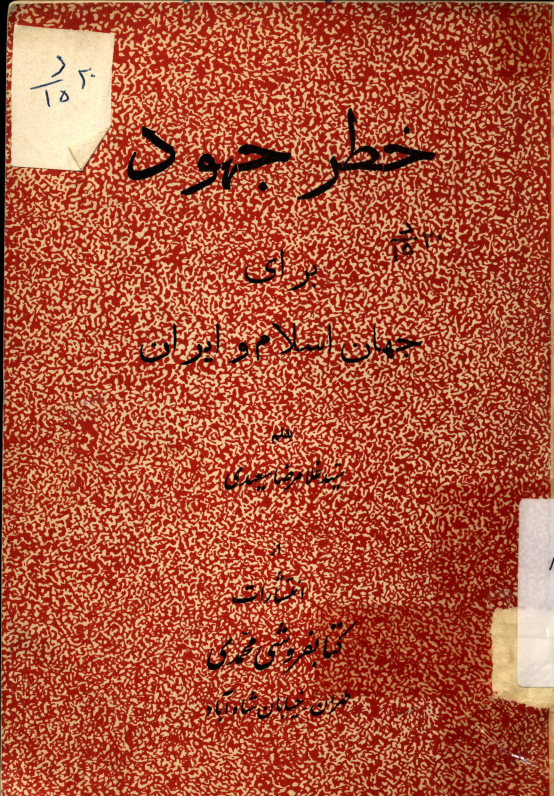 د ۲۰
۱۵
خطر جهود
د ۲۰
۱۵
برای
جهان اسلام و ایران
بقلم
سید غلامرضا سعیدی
از
انتشارات
کتابفروشی محمدی
تهران خیابان شاه آباد